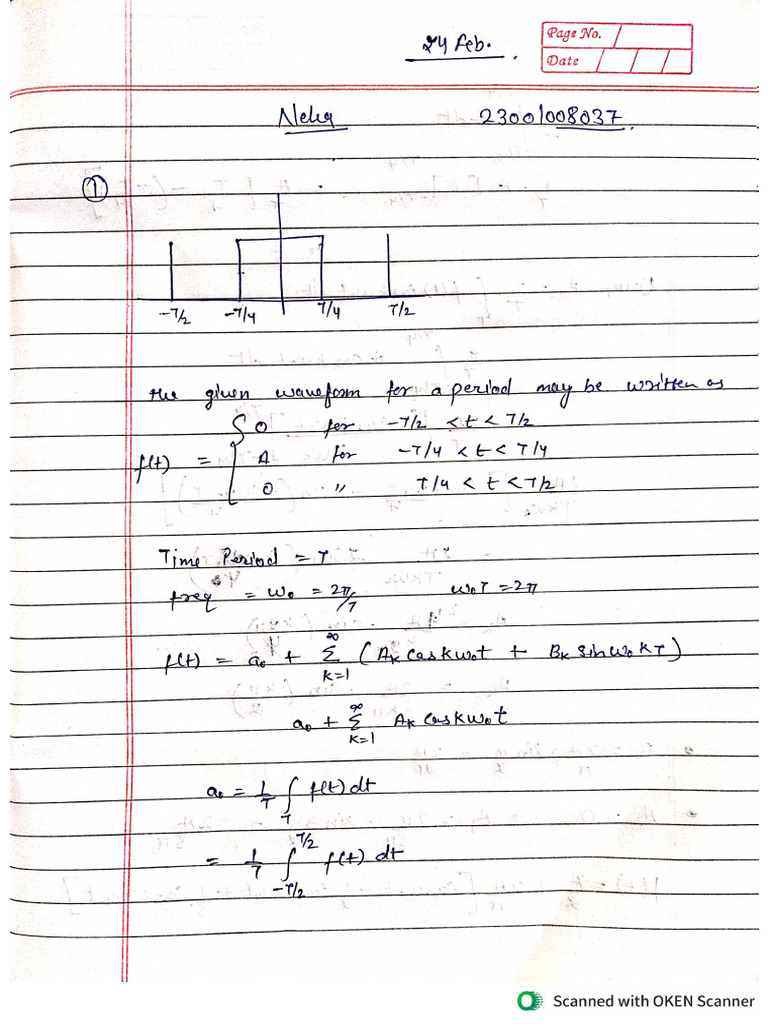 24 Feb.
Page No.
Date
Neha 23001008037
①
-T/2 -T/4 T/4 T/2
The given waveform for a period may be written as
f(t) = { 0 for -T/2 < t < T/2
A for -T/4 < t < T/4
0 " T/4 < t < T/2
Time Period = T
freq = ω₀ = 2π/T ω₀T = 2π
f(t) = a₀ + ∞Σk=1 (Aₖ cos kω₀t + Bₖ sin ω₀ kT)
a₀ + ∞Σk=1 Aₖ cos kω₀t
a₀ = 1/T ∫T f(t) dt
= 1/T ∫-T/2^T/2 f(t) dt
Scanned with OKEN Scanner